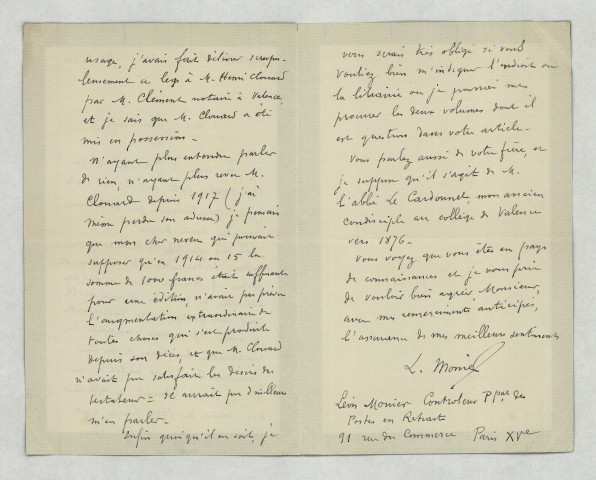 usage, j'avais fait délivrer scrupu-
leusement ce legs à M. Henri Clouard
par M. Clément notaire à Valence,
et je sais que M. Clouard a été
mis en possession -
N'ayant plus entendu parler
de rien, n'ayant plus revu M.
Clouard depuis 1917 (j'ai
même perdu son adresse) je pensais
que mon cher neveu qui pouvait
supposer qu'en 1914 ou 15 la
somme de 1000 francs était suffisante
pour une édition, n'avait pas prévu
l'augmentation extraordinaire de
toutes choses qui s'est produite
depuis son décès, et que M. Clouard
n'avait pu satisfaire les désirs du
testateur = Il aurait pu d'ailleurs
m'en parler -
Enfin quoiqu'il en soit, je
vous serais très obligé si vous
vouliez bien m'indiquer l'endroit ou
la librairie où je pourrais me
procurer les deux volumes dont il
est question dans votre article -
Vous parlez aussi de votre frère, et
je suppose qu'il s'agit de M.
l'abbé Le Cardonnel, mon ancien
condisciple au collège de Valence
vers 1876 -
Vous voyez que vous êtes en pays
de connaissances et je vous prie
de vouloir bien agréer, Monsieur,
avec mes remerciements anticipés,
l'assurance de mes meilleurs sentiments
L. Monier
Léon Monier Controleur Ppal des
Postes en Retraite
91 rue du Commerce Paris XVe